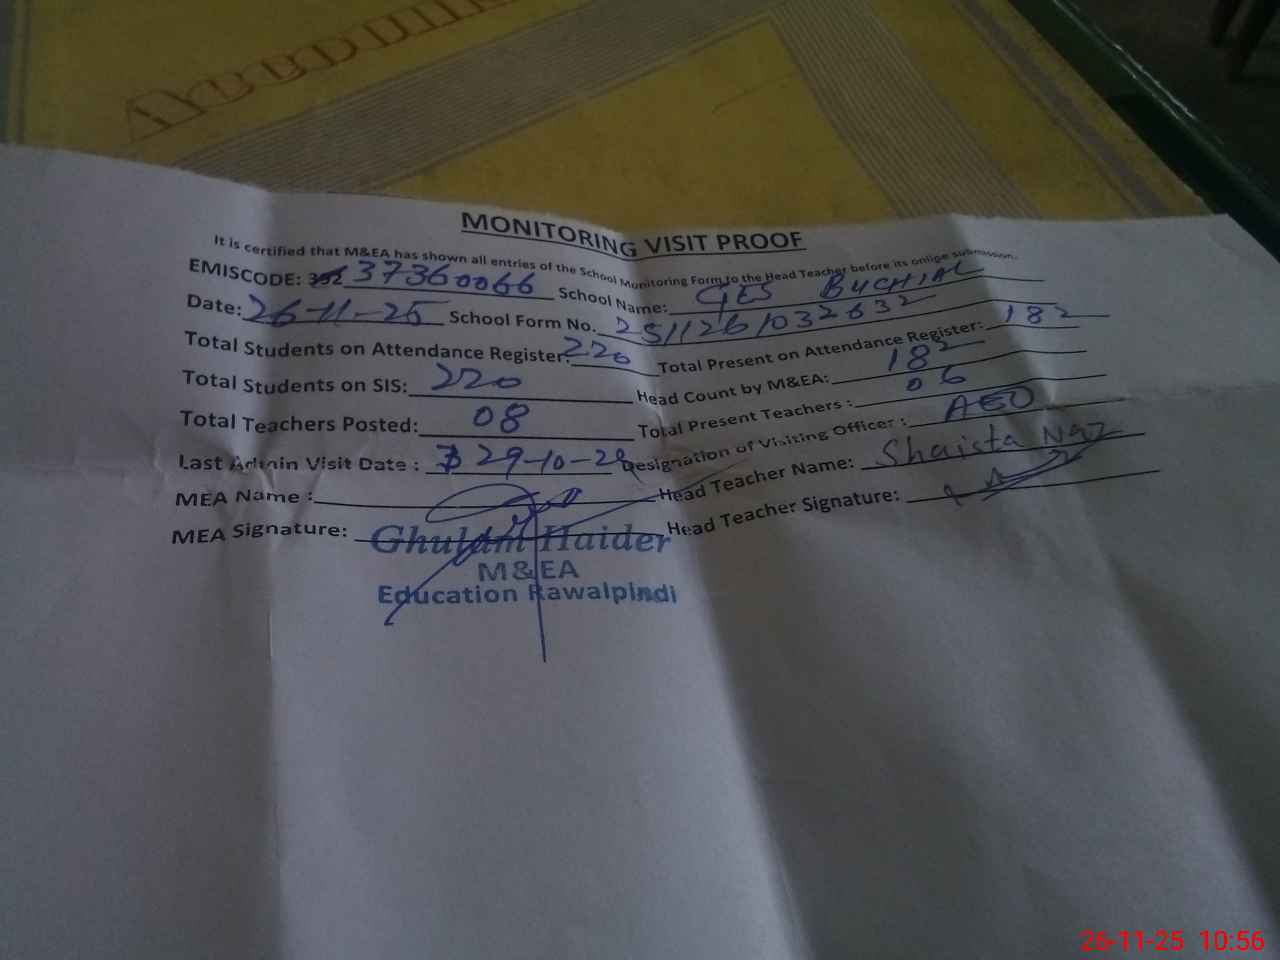 MONITORING VISIT PROOF
It is certified that M&EA has shown all entries of the School Monitoring Form to the Head Teacher before its online submission.
EMISCODE: 37360066 School Name: GES BUCHIAL
Date: 26-11-25 School Form No. 2511261032632
Total Students on Attendance Register: 220 Total Present on Attendance Register: 182
Total Students on SIS: 220 Head Count by M&EA: 182
Total Teachers Posted: 08 Total Present Teachers : 06
Last Admin Visit Date : 29-10- Designation of Visiting Officer : AEO
MEA Name : Head Teacher Name: Shaista Naz
MEA Signature: Head Teacher Signature:
Ghulam Haider
M&EA
Education Rawalpindi
26-11-25 10:56